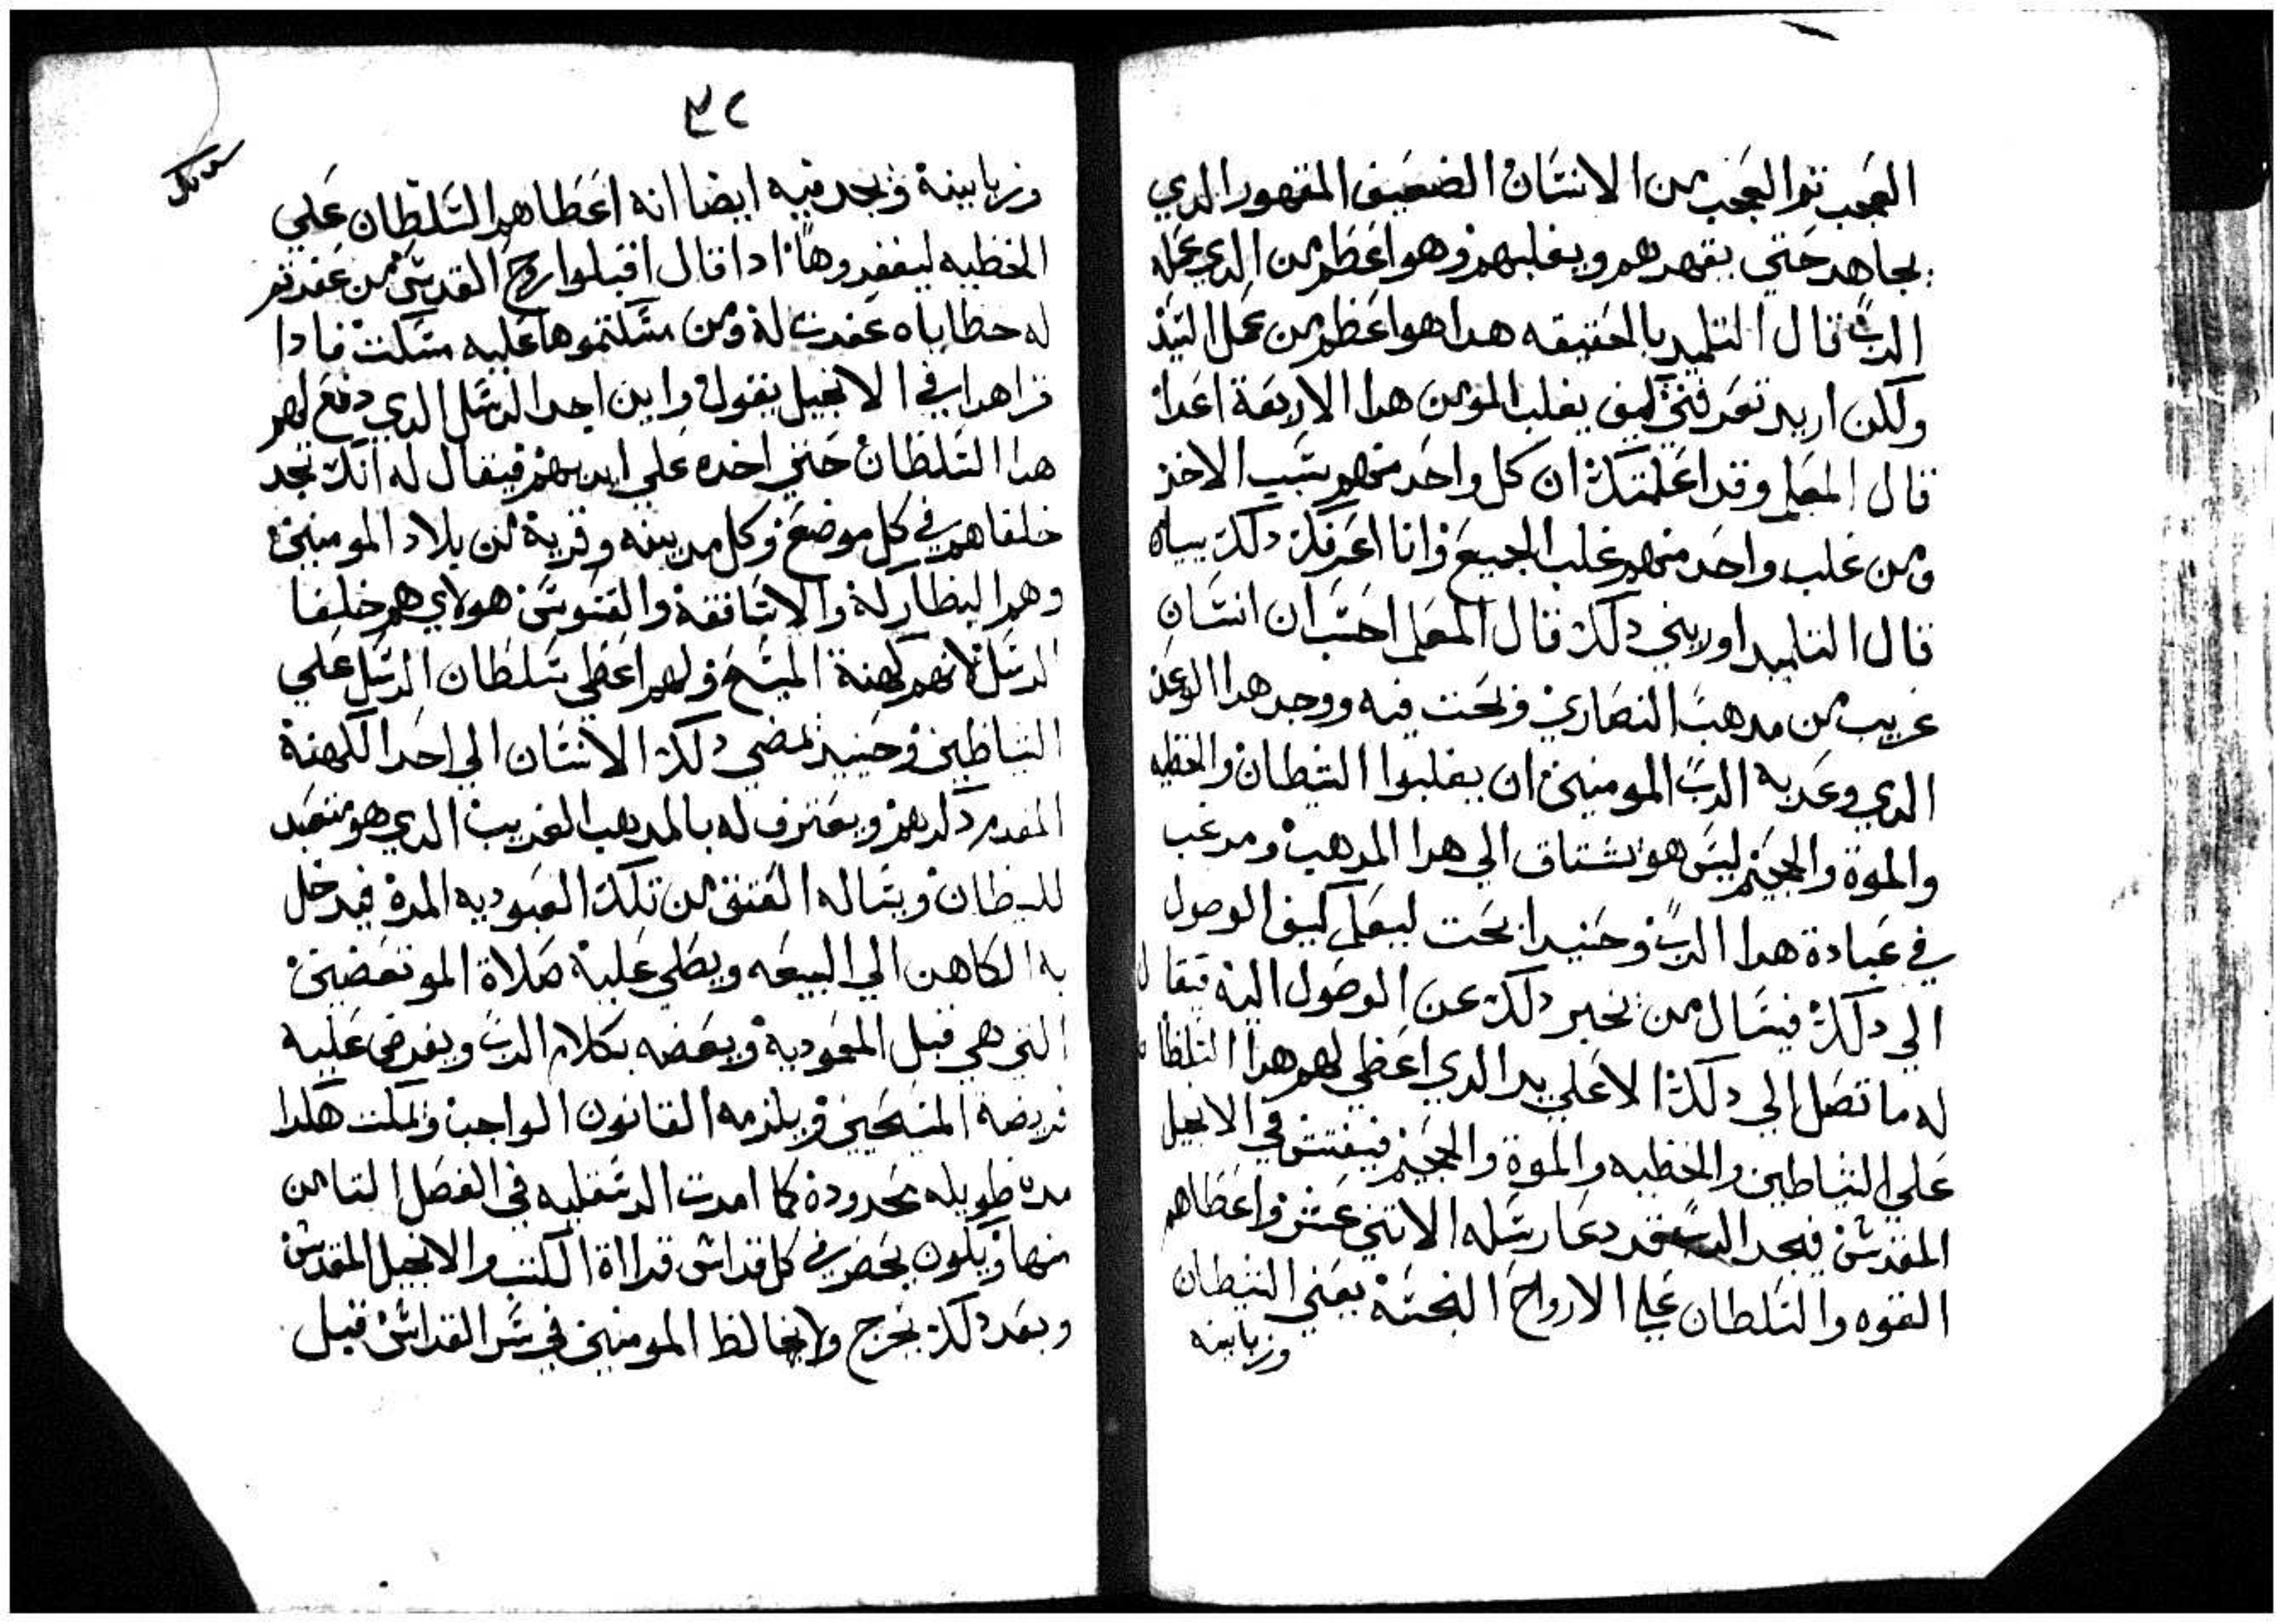 العجب تم العجب من الانسان الضعيف المقهور الدي
يجاهد حتي يقهرهم ويغلبهم وهو اعظم من الدي عمله
الرب قال التلميد بالحقيقه هدا هو اعظم من عمل السيد
ولكن اريد تعرفني كيف يغلب المومن هدا الاربعة اعدا
قال المعلم وقد اعلمتك ان كل واحد منهم يسبب الاخر
ومن غلب واحد منهم غلب الجميع وانا اعرفك دلك بيبان
قال التلميد اوريني دلك قال المعلم احسب ان انسان
غريب من مدهب النصاري وبحت فيه ووجد هدا الوعد
الدي وعد به الرب المومنين ان يغلبوا الشيطان والخطيه
والموة والجحيم ليس هو يشتاق الي هدا المدهب ومرغب
في عبادة هدا الرب وحنيدا بحت ليعلم كيف الوصول
الي دلك فيسال من نحبر دلك عن الوصول اليه فيقال
له ما تصل الي دلك الا علي يد الدي اعطي لهم هدا السلطان
علي الشياطين والخطيه والموة والجحيم فيفتش في الانجيل
المقدس فيجد الرب قد دعا رسله الاتني عشر واعطاهم
القوه والسلطان علي الارواح النجسة يعني الشيطان
وزبانيه
٣٢
وزبانية ويجد فيه ايضا انه اعطاهم السلطان علي
الخطيه ليغفروها ادا قال اقبلوا روح القدس من غفرتم
له خطاياه غفرت له ومن مسكتموها عليه مسكت فادا
قرا هدا في الانجيل يقول واين اجد الرسل الدي دفع لهم
هدا السلطان حتي اخده علي ايديهم فيقال له انك تجد
خلفاهم في كل موضع وكل مدينه وقرية من بلاد المومنين
وهم البطاركة والاساقفة والقسوس هولاي هم خلفا
الرسل لانهم كهنة المسيح ولهم اعطي سلطان الرسل علي
الشياطين وحينيد يمضي دلك الانسان الي احد الكهنة
المقدم دكرهم ويعترف له بالمدهب الغريب الدي هو متعبد
للشيطان ويساله العتق من تلك العبوديه المرة فيدخل
به الكاهن الي البيعه ويصلي علية صلاة الموتعضين
التي هي قبل المعمودية ويعضه بكلام الرب ويفرض عليه
فريضة المسيحين ويلزمه القانون الواجب ويمكت هكدا
مدة طويله محدودة كما امرت الدسقليه في الفصل التامن
منها ويكون يحضر في كل قداس قراأة الكتب والانجيل المقدس
وبعد دلك يخرج ولا يخالط المومنين في سر القداس قبل